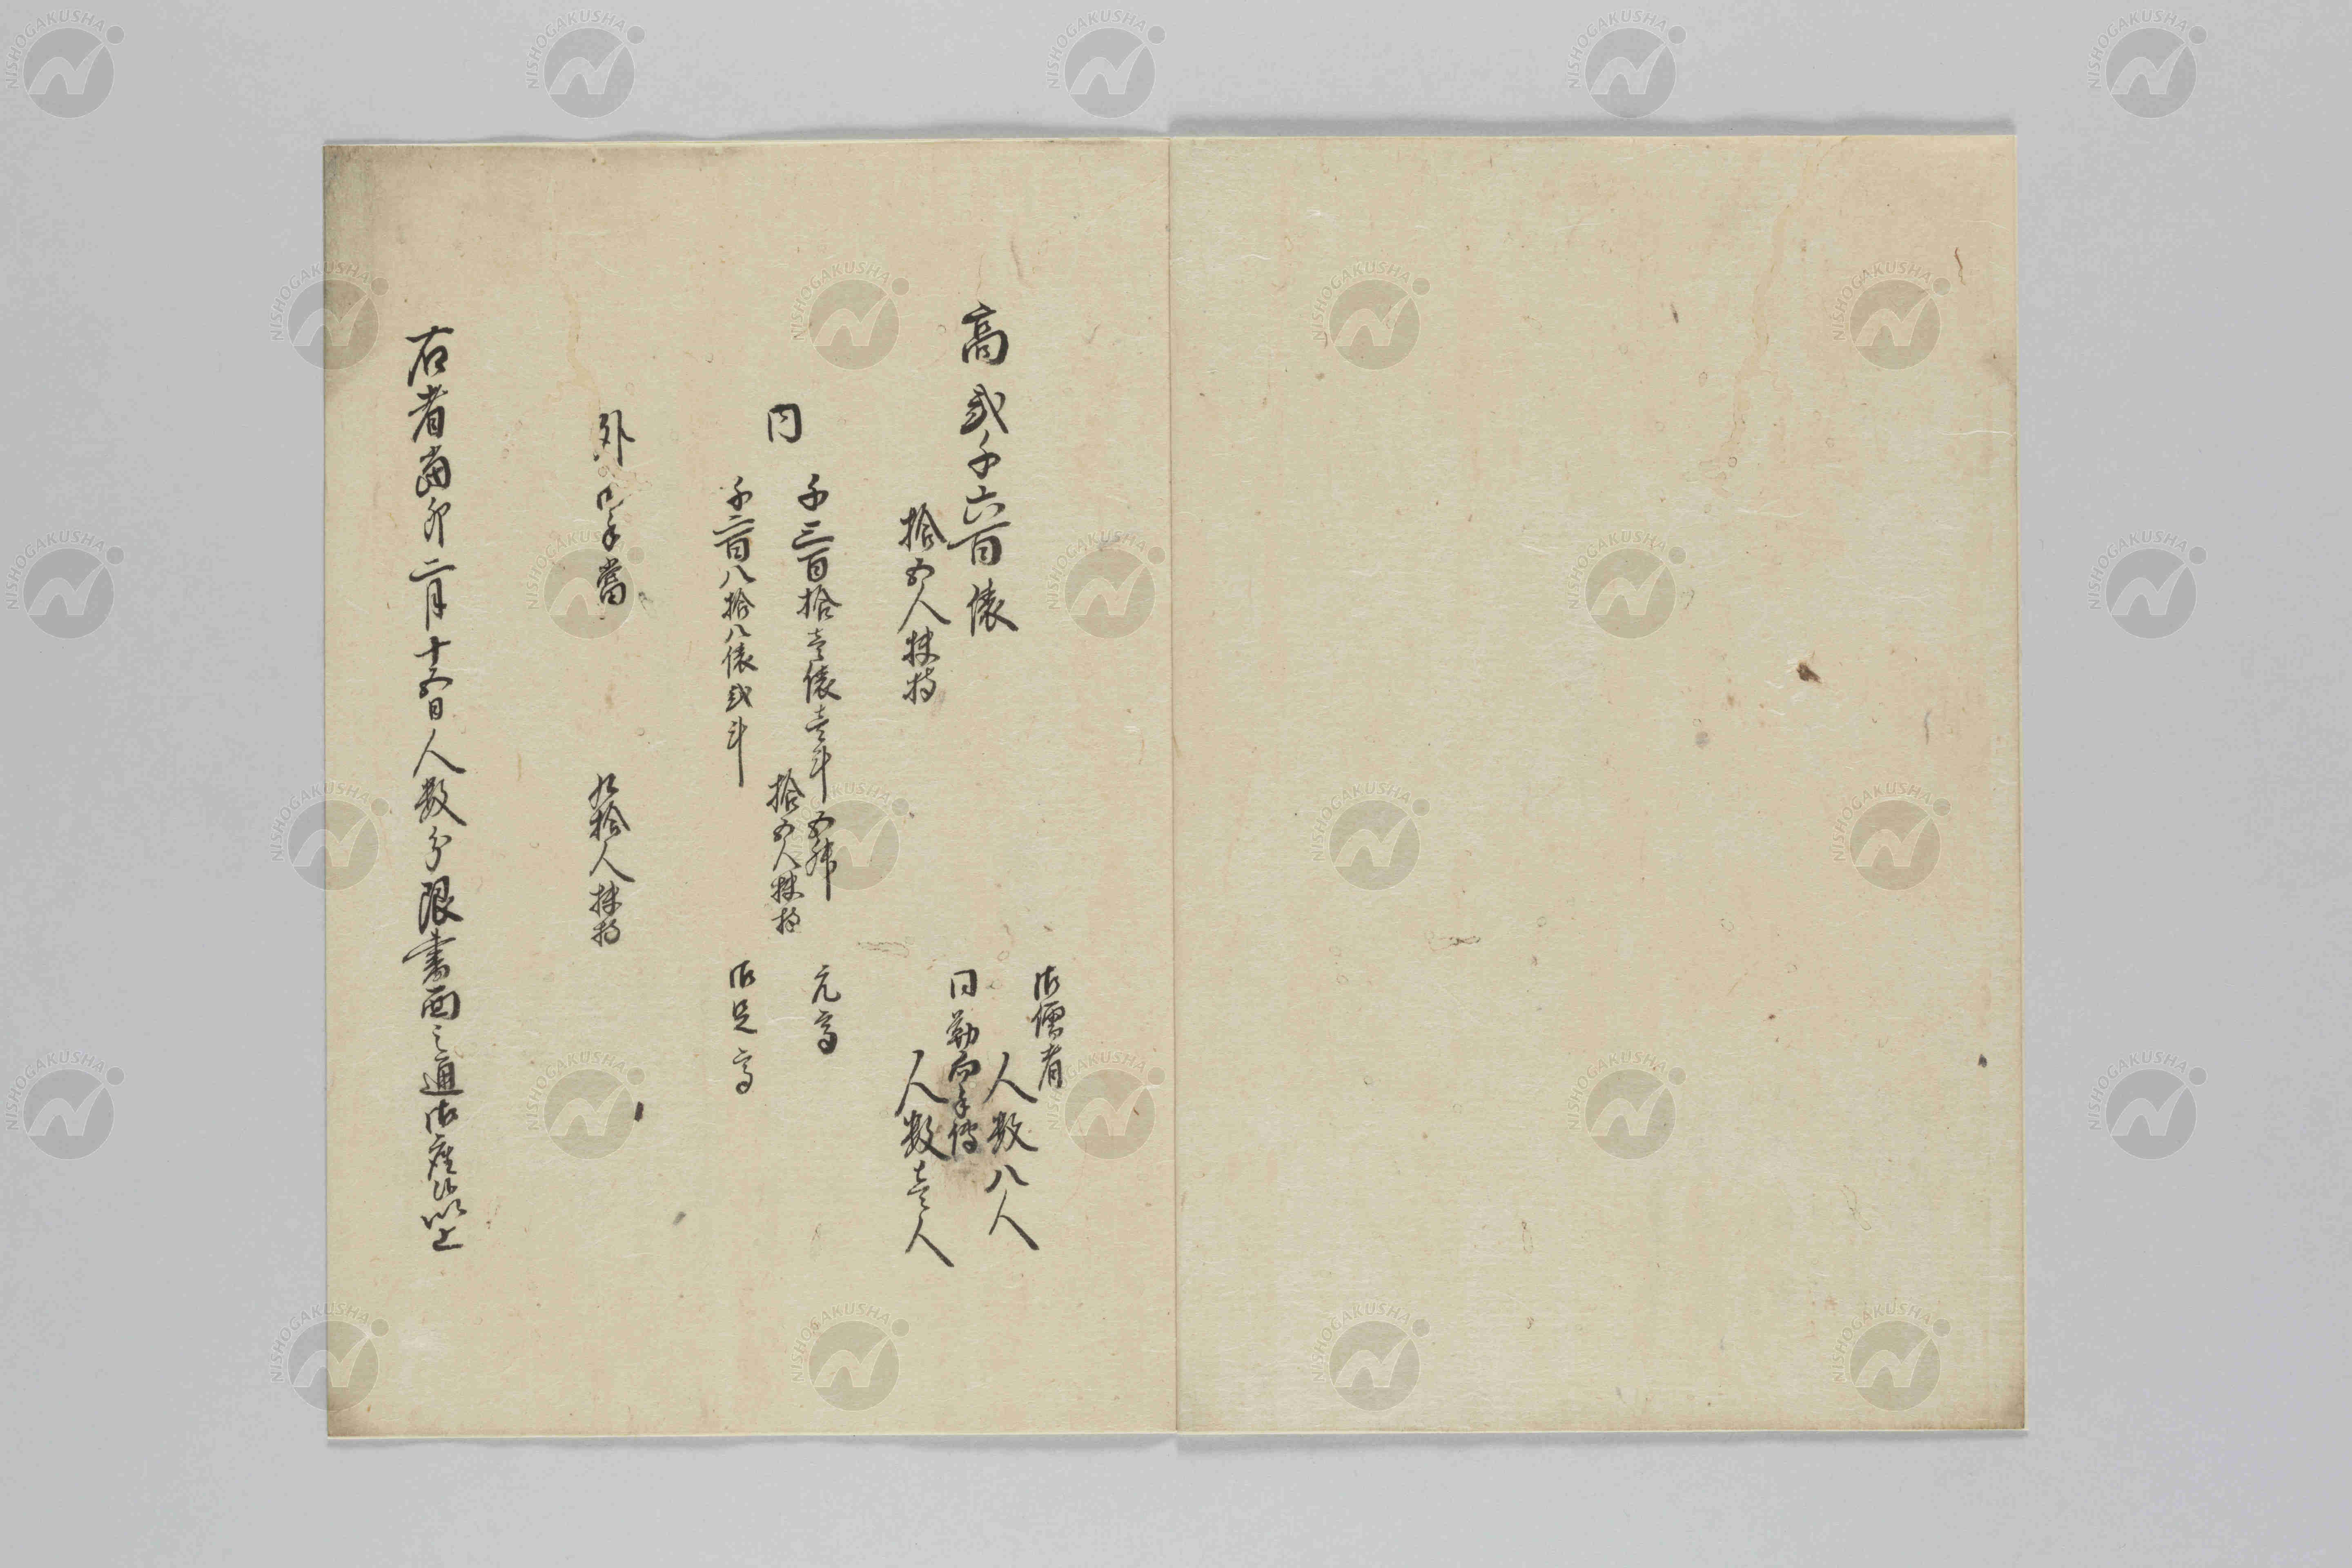 御儒者
人数八人
高弐千六百俵
同勤向手傳
人数壱人
拾五人扶持
内
千三百拾壱俵壱斗五升
拾五人扶持
元高
千二百八拾八俵弐斗
御足高
外御手當
九拾人扶持
右者當卯二月十五日人数分限書面之通御座候以上
NISHOGAKUSHA